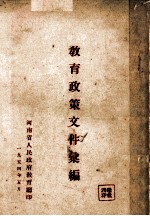 教育政策文件彙編
河南省人民政府教育廳印
一九五四年五月